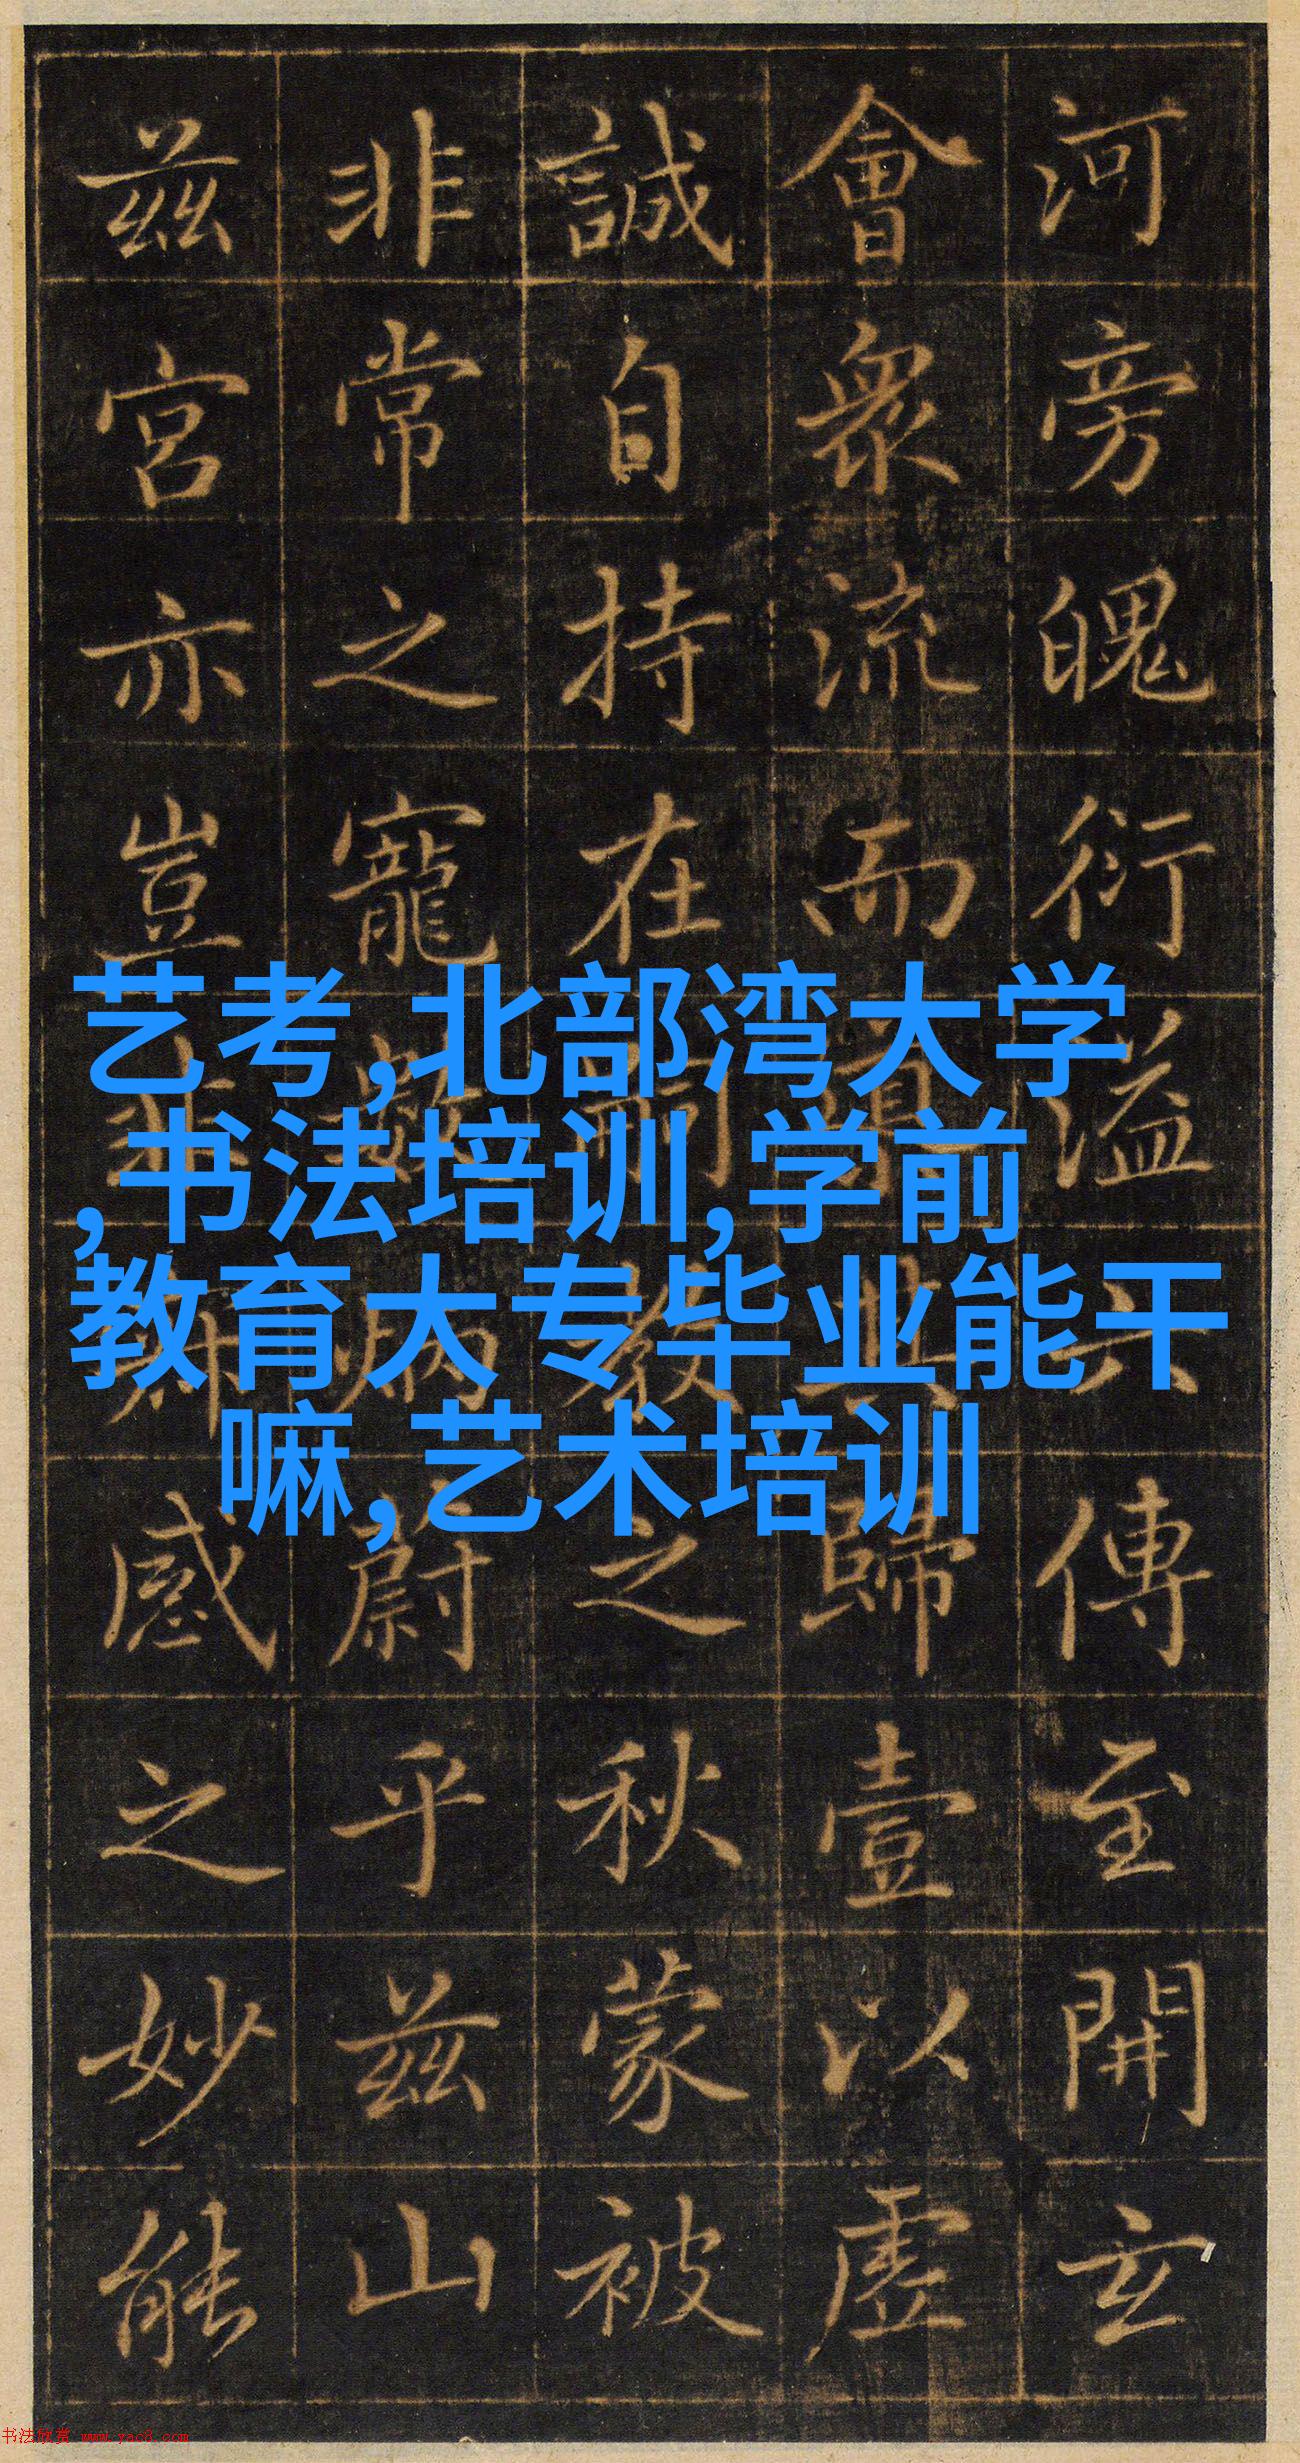 河旁魄衍溢傳至開玄
會衆流而歸壹以虛
誠自持在教之秋蒙被
非常之寵炳蔚乎茲山
茲宮亦豈非感之妙能
艺考,北部湾大学
,书法培训,学前
教育大专毕业能干
嘛,艺术培训
书法欣赏 www.yac8.com